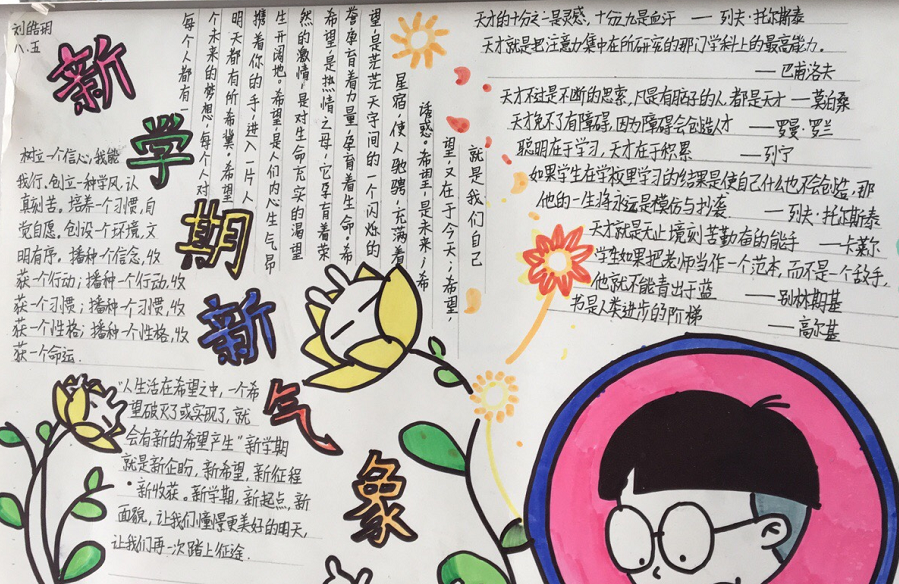 刘皓玥
八.五
新
学
期
新
气
象
树立一个信心,我能
我行。创立一种学风,认
真刻苦。培养一个习惯,自
觉自愿。创设一个环境,文
明有序。播种一个信念,收
获一个行动;播种一个行动,收
获一个习惯;播种一个习惯,收
获一个性格;播种一个性格,收
获一个命运.
就是我们自己
望,又在于今天;希望,
诱惑。希望,是未来;希
星宿,使人驰骋,充满着
望,是茫茫天宇间的一个闪烁的
誉,孕育着力量,孕育着生命。希
希望,是热情之母,它孕育着荣
然的激情,是对生命充实的渴望
生开阔地。希望,是人们内心生气昂
携着你的手,进入一片人
明天都有所希冀。希望
个未来的梦想,每个人对
每个人都有一
天才的十分之一是灵感,十分九是血汗 — 列夫·托尔斯泰
天才就是把注意力集中在所研究的那门学科上的最高能力。
— 巴甫洛夫
天才不过是不断的思索,凡是有脑子的人,都是天才 — 莫泊桑
天才免不了有障碍,因为障碍会创造人才 — 罗曼·罗兰
聪明在于学习,天才在于积累 — 列宁
如果学生在学校里学习的结果是使自己什么也不会创造,那
他的一生将永远是模仿与抄袭 — 列夫·托尔斯泰
天才就是无止境刻苦勤奋的能手 — 卡莱尔
学生如果把老师当作一个范本,而不是一个敌手,
他就不能青出于蓝 — 别林斯基
书是人类进步的阶梯 — 高尔基
"人生活在希望之中,一个希
望破灭了或实现了,就
会有新的希望产生"新学期
就是新企盼,新希望,新征程
·新收获。新学期,新起点,新
面貌,让我们懂得更美好的明天,
让我们再一次踏上征途.